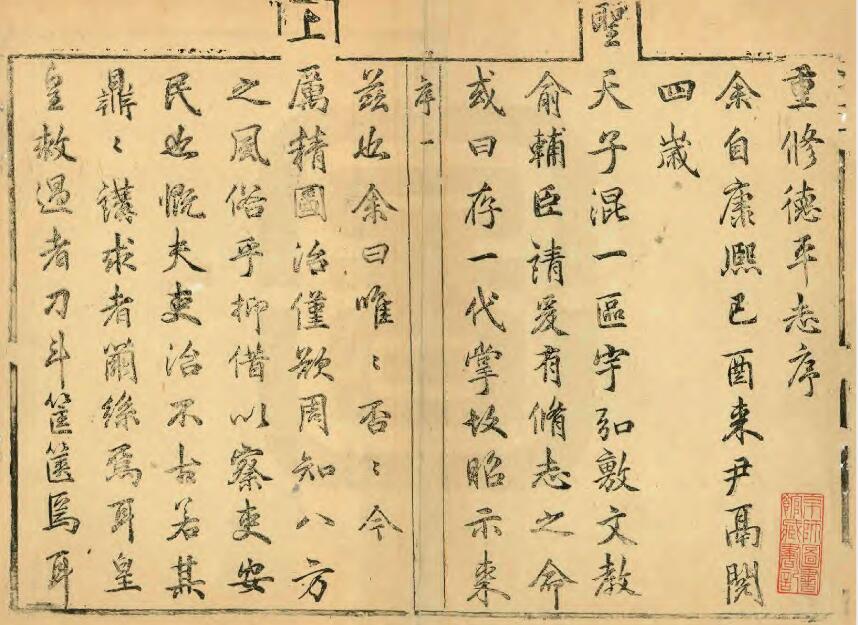 重修德平志序
余自康熙己酉来尹鬲閱
四歲
聖天子混一區宇弘敷文教
俞輔臣請爰有脩志之命
或曰存一代掌故昭示来
序 一
兹也余曰唯〻否〻今
上厲精圖治僅欲周知八方
之風俗乎抑借以察吏安
民也慨夫吏治不古若其
鼎〻講求者繭絲焉耳皇
皇救過者刀斗筐篋焉耳
京師圖書
館藏書記